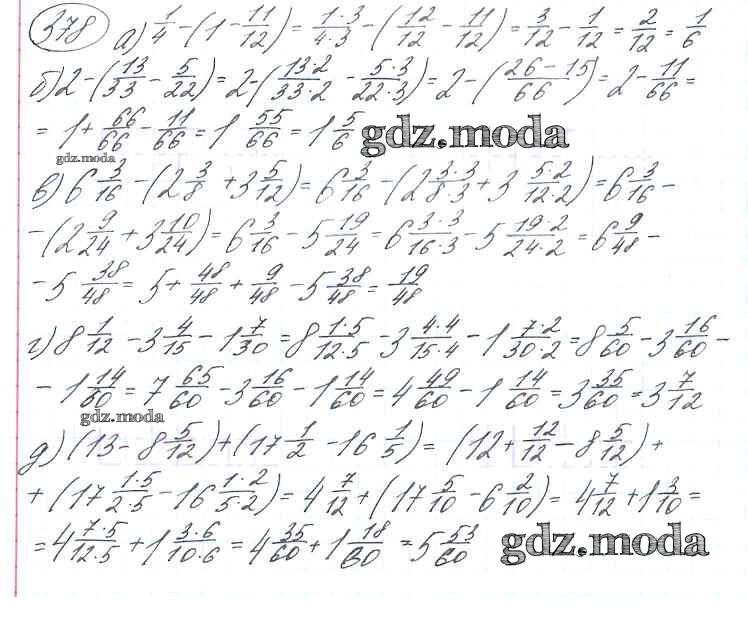 378 а) 1/4 - (1 - 11/12) = 1·3/4·3 - (12/12 - 11/12) = 3/12 - 1/12 = 2/12 = 1/6
б) 2 - (13/33 - 5/22) = 2 - (13·2/33·2 - 5·3/22·3) = 2 - (26-15/66) = 2 - 11/66 =
= 1 + 66/66 - 11/66 = 1 55/66 = 1 5/6 gdz.moda
gdz.moda
в) 6 3/16 - (2 3/8 + 3 5/12) = 6 3/16 - (2 3·3/8·3 + 3 5·2/12·2) = 6 3/16 -
- (2 9/24 + 3 10/24) = 6 3/16 - 5 19/24 = 6 3·3/16·3 - 5 19·2/24·2 = 6 9/48 -
- 5 38/48 = 5 + 48/48 + 9/48 - 5 38/48 = 19/48
г) 8 1/12 - 3 4/15 - 1 7/30 = 8 1·5/12·5 - 3 4·4/15·4 - 1 7·2/30·2 = 8 5/60 - 3 16/60 -
- 1 14/60 = 7 65/60 - 3 16/60 - 1 14/60 = 4 49/60 - 1 14/60 = 3 35/60 = 3 7/12
gdz.moda
д) (13 - 8 5/12) + (17 1/2 - 16 1/5) = (12 + 12/12 - 8 5/12) +
+ (17 1·5/2·5 - 16 1·2/5·2) = 4 7/12 + (17 5/10 - 6 2/10) = 4 7/12 + 1 3/10 =
= 4 7·5/12·5 + 1 3·6/10·6 = 4 35/60 + 1 18/60 = 5 53/60 gdz.moda